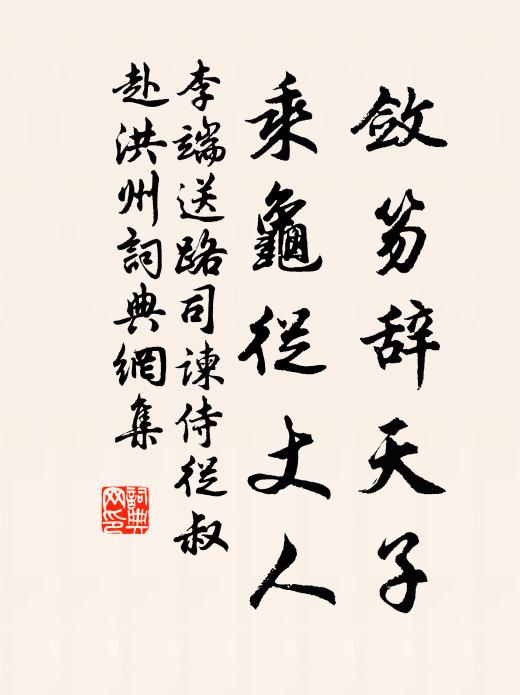 敛笏辞天子
乘龜從丈人
李端送路司諫侍從叔
赴洪州詞典網集
詞典
网印